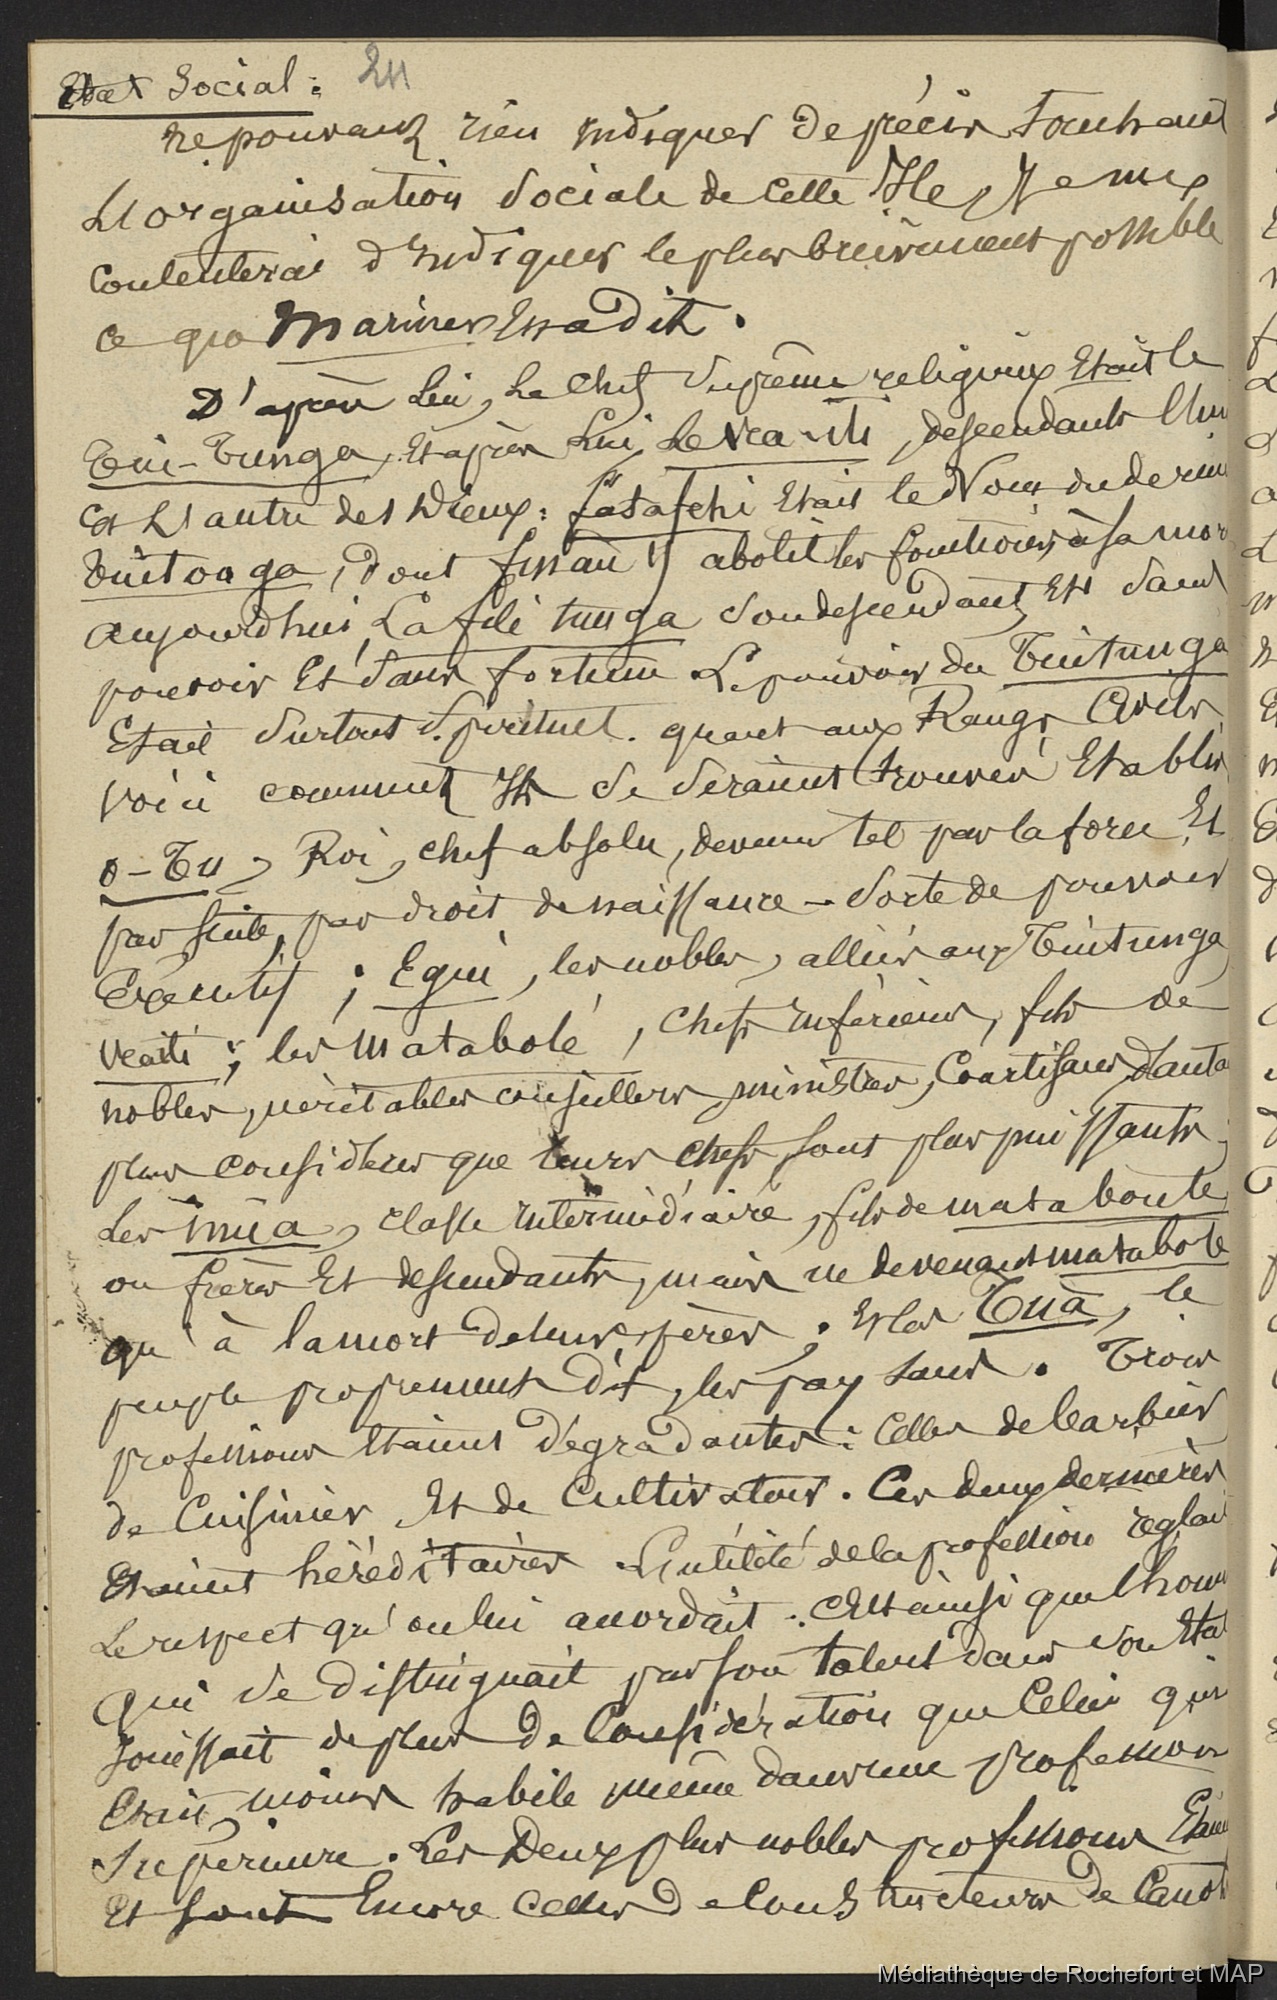 Etat Social : 211
ne pouvant rien indiquer de précis touchant
L'organisation Sociale de cette Ile, Je me
contenterai d'indiquer le plus brièvement possible
ce que Mariner en a dit.
D'après Lui, Le Chef Suprême religieux Etait le
Tüi-Tunga, Et après Lui, Le Vea-Iti, descendants l'un
Et L'autre des Dieux : Latafehi Etait le Nom du dernier
Tuitonga, dont finau abolit les fonctions, à sa mort
aujourd'hui, Lafili tunga Son descendant, Est Sans
pouvoir Et Sans fortune. Le pouvoir du Tuitunga
Etait Surtout Spirituel. quant aux Rangs Civils,
voici comment Ils Se Seraient trouvés Etablis
o-Tu, Roi, chef absolu, devenu tel par la force Et
par suite, par droit de naissance - Sorte de pouvoir
Exécutif ; Egui, les nobles, alliés aux Tuitunga,
Veaiti ; les Matabolé, Chefs inférieurs, fils de
nobles, véritables conseillers, ministres, Courtisans, d'autant
plus considérés que leurs chefs sont plus puissants ;
Les mua, classe intermédiaire, fils de mataboule
ou frères Et descendants, mais ne devenant matabole
qu'à la mort de leurs pères ; Et les Tuà, le
peuple proprement dit, les paysans. Trois
professions Etaient dégradantes : Celles de barbier
de Cuisinier Et de Cultivateur. Ces deux dernières
Etaient héréditaires. L'utilité de la profession réglait
Le respect qu'on lui accordait. C'est ainsi que l'homme
qui Se distinguait par son talent dans Son Etat
Jouissait de plus de Considération que Celui qui
Etait moins habile même dans une profession
Supérieure. Les Deux plus nobles professions Etaient
Et sont Encore celles de Constructeurs de Canots
Médiathèque de Rochefort et MAP